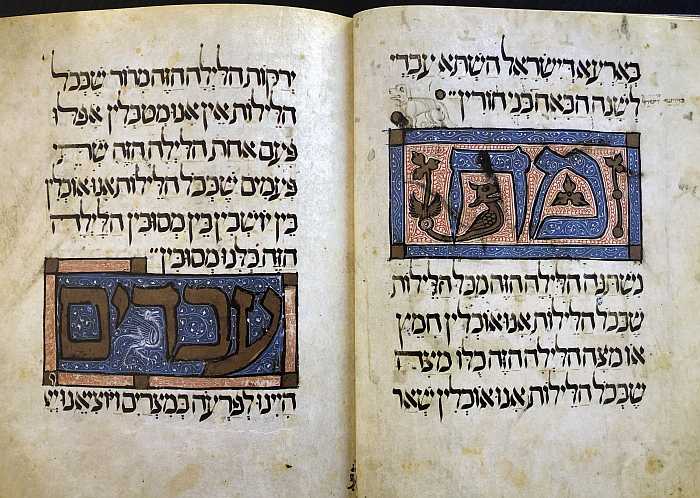 בארעא דישראל השתא עבדי
לשנה הבאה בני חורין״
מה
נשתנה הלילה הזה מכל הלילות
שבכל הלילות אנו אוכלין חמץ
או מצה הלילה הזה כלו מצה
שבכל הלילות אנו אוכלין שאר
ירקות הלילה הזה מרור שבכל
הלילות אין אנו מטבלין אפלו
פעם אחת הלילה הזה שתי
פעמים שבכל הלילות אנו אוכלין
בין יושבין בין מסובין הלילה
הזה כלנו מסובין״
עבדים
היינו לפרעה במצרים ויוציאנו יי